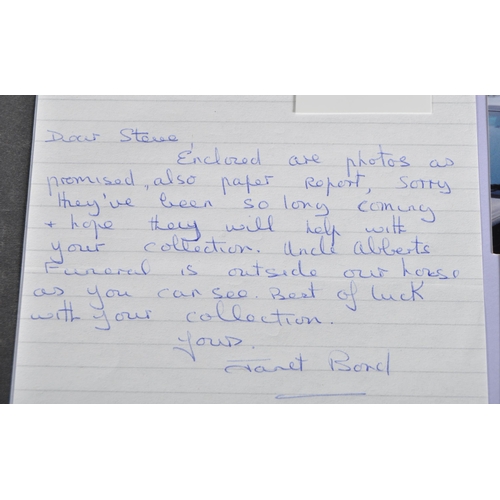 Dear Steve
Enclosed are photos as
promised, also paper report, sorry
they've been so long coming
+ hope they will help with
your collection. Uncle Abberts
Funeral is outside our house
as you can see. Best of luck
with your collection.
Yours.
Janet Bond